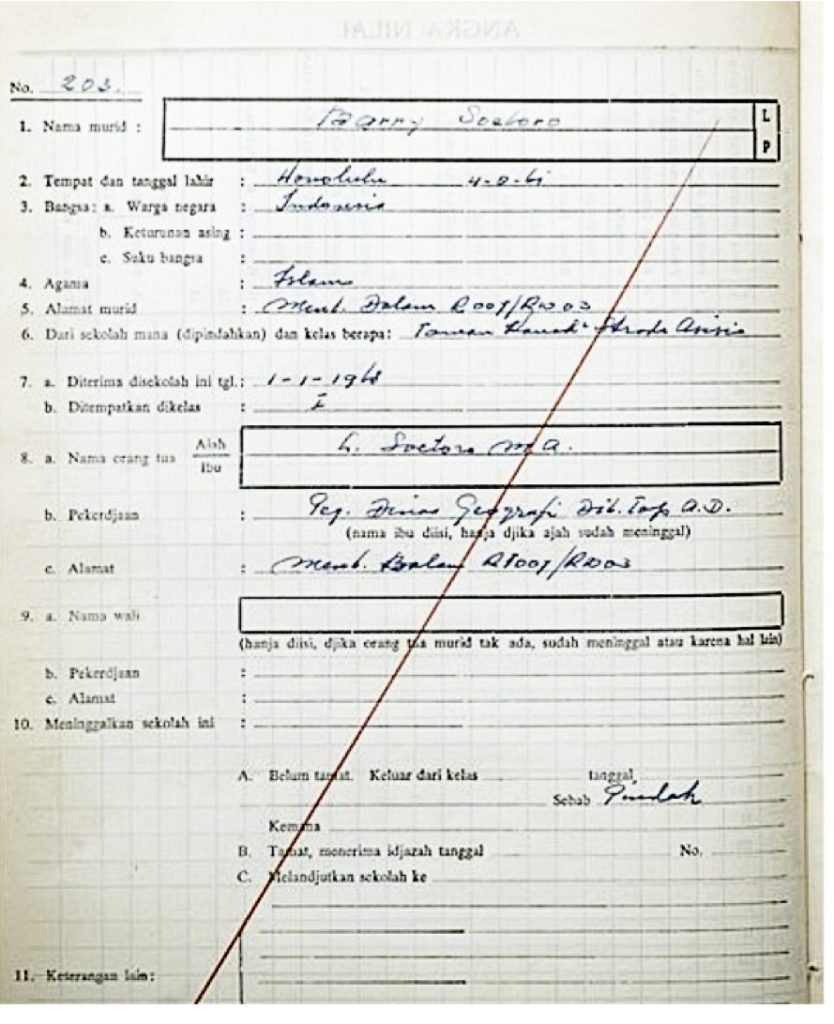 ANGKA NILAI
No. 203.
1. Nama murid : Barry Soetoro L
P
2. Tempat dan tanggal lahir : Honolulu 4-8-61
3. Bangsa: a. Warga negara : Indonesia
b. Keturunan asing :
c. Suku bangsa :
4. Agama : Islam
5. Alamat murid : Ment. Dalam R007/RW03
6. Dari sekolah mana (dipindahkan) dan kelas berapa: Taman Asisia
7. a. Diterima disekolah ini tgl.: 1-1-1968
b. Ditempatkan dikelas : I
8. a. Nama orang tua Ajah L. Soetoro M.A.
Ibu
b. Pekerdjaan : Peg. Dinas Geografi Dit. Top. A.D.
(nama ibu diisi, hanja djika ajah sudah meninggal)
c. Alamat : Ment. Dalam RT007/RW03
9. a. Nama wali
(hanja diisi, djika orang tua murid tak ada, sudah meninggal atau karena hal lain)
b. Pekerdjaan :
c. Alamat :
10. Meninggalkan sekolah ini :
A. Belum tamat. Keluar dari kelas tanggal
Sebab Pindah
Kemana
B. Tamat, menerima idjazah tanggal No.
C. Melandjutkan sekolah ke
11. Keterangan lain: